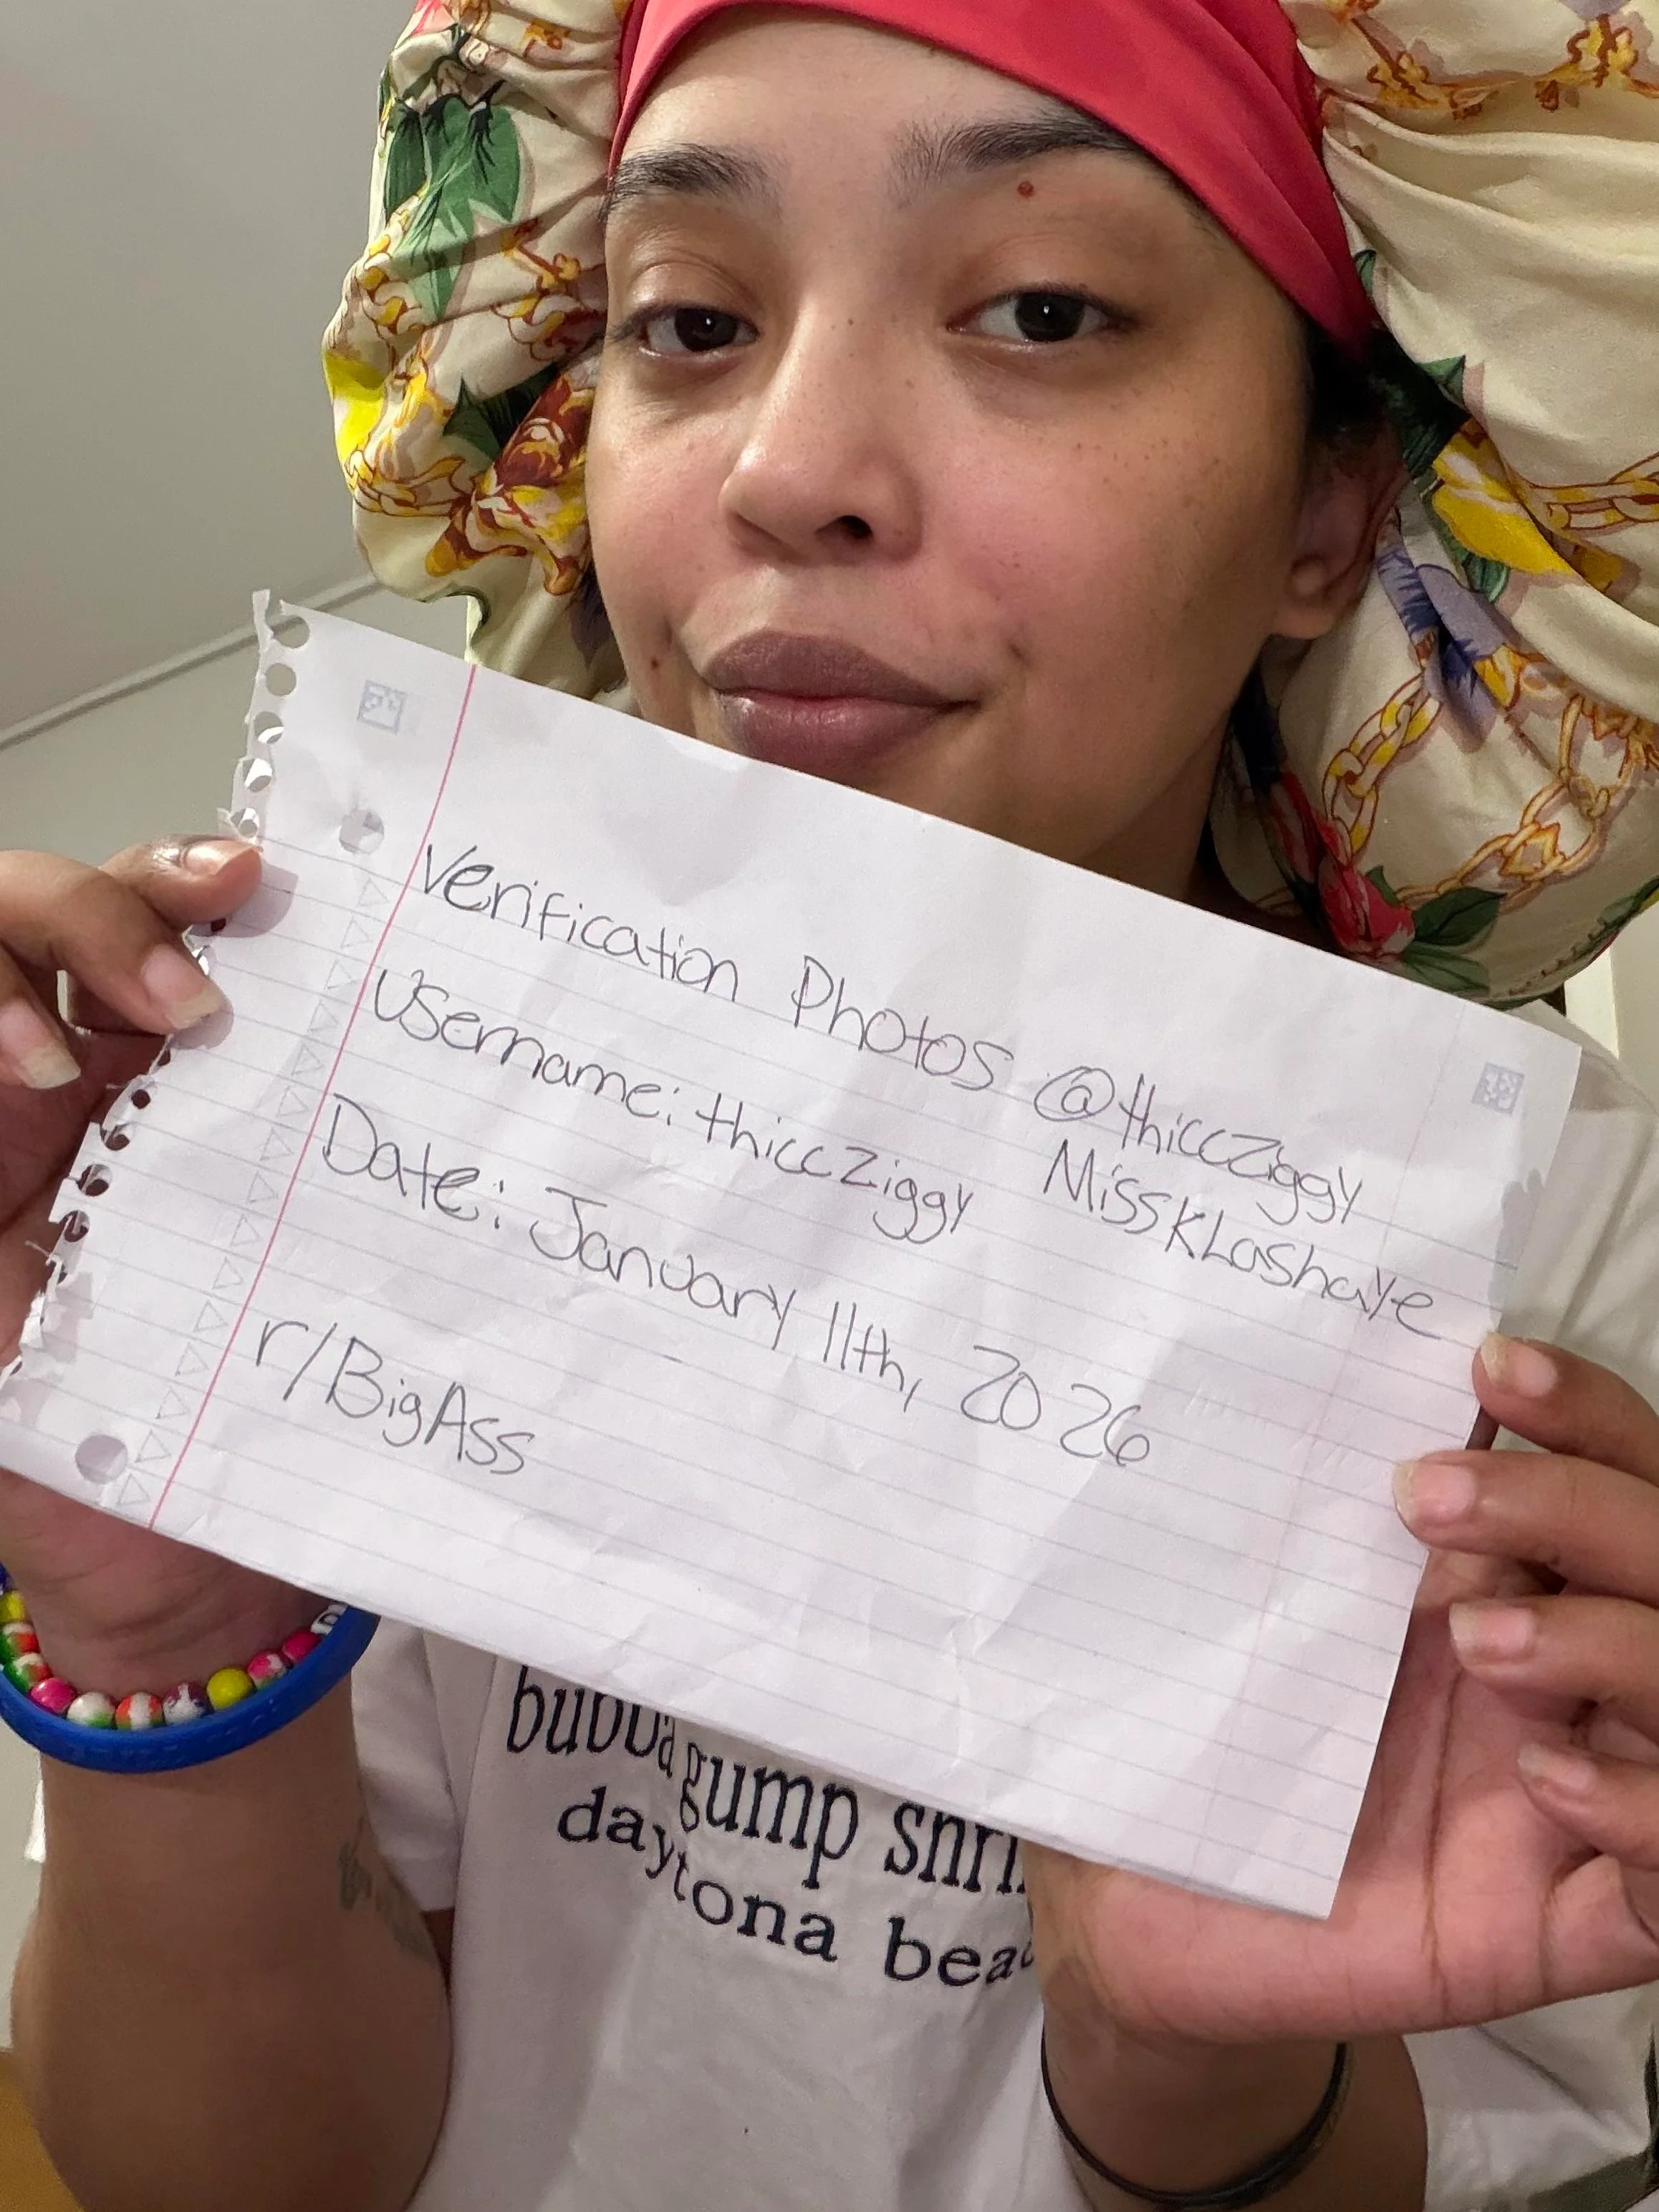 Verification Photos @thiccziggy
Username: thiccziggy MissKLashaye
Date: January 11th, 2026
r/BigAss
bubba gump
daytona